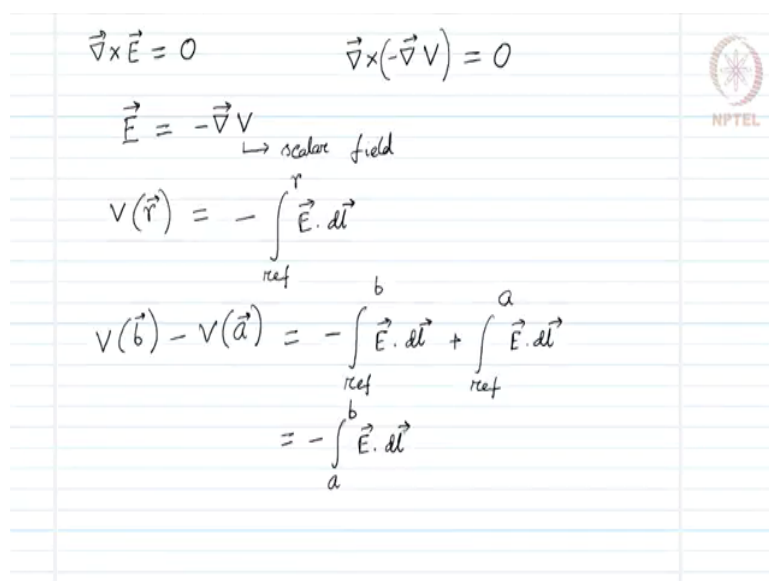 ∇⃗×E⃗ = 0    ∇⃗×(-∇⃗V) = 0
NPTEL
E⃗ = -∇⃗V
↳ scalar field
V(r⃗) = - ∫_ref^r E⃗ . dl⃗
V(b⃗) - V(a⃗) = - ∫_ref^b E⃗ . dl⃗ + ∫_ref^a E⃗ . dl⃗
= - ∫_a^b E⃗ . dl⃗